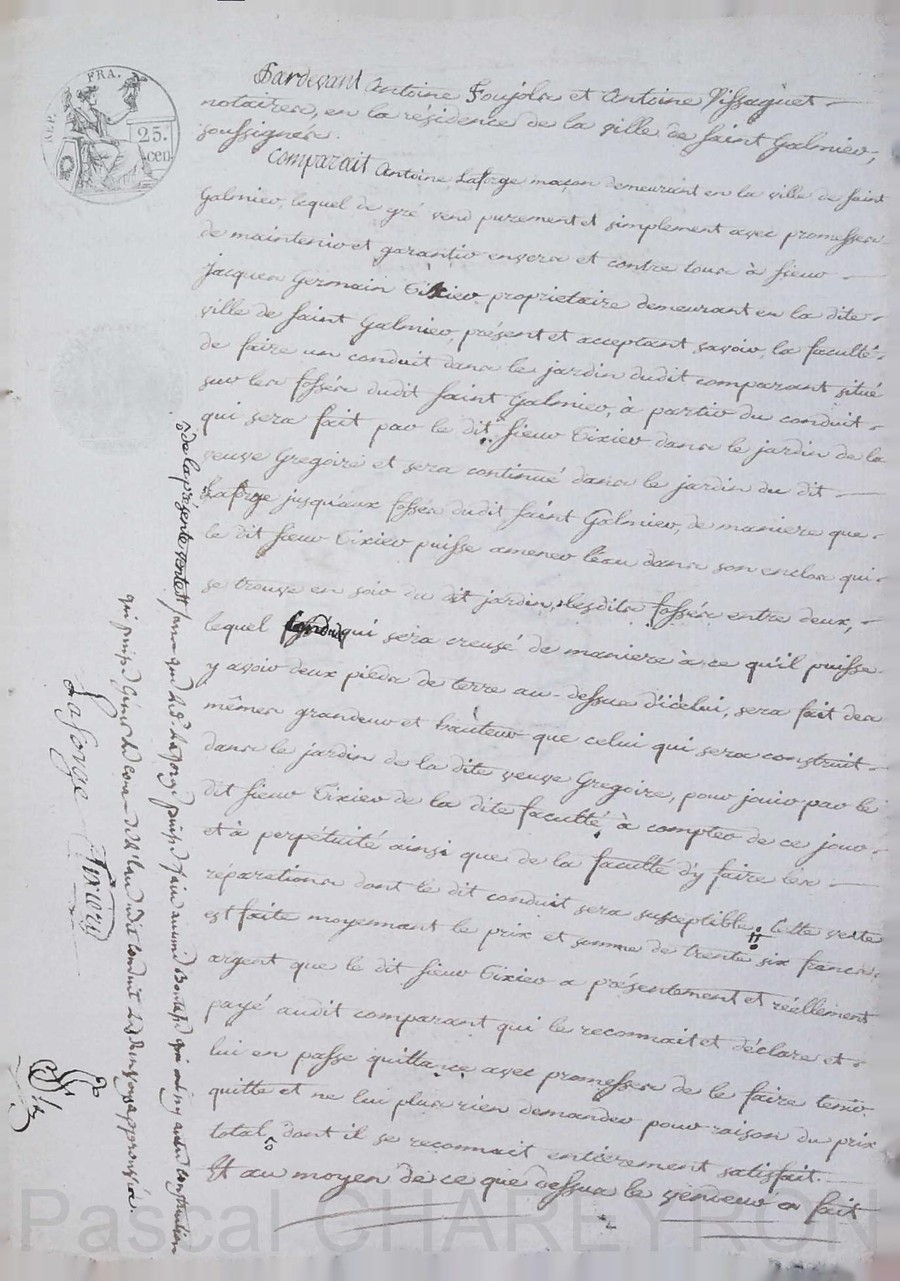 REP. FRA.
25.
cen
Pardevant Antoine Foujols et Antoine Vissaguet
notaires, en la résidence de la ville de saint Galmier,
soussignés.
Comparait Antoine Laforge maçon demeurant en la ville de saint
Galmier, lequel de gré vend purement et simplement avec promesses
de maintenir et garantir envers et contre tous à sieur
Jacques Germain Tixier proprietaire demeurant en la dite
ville de saint Galmier, présent et acceptant, savoir, la faculté
de faire un conduit dans le jardin dudit comparant situé
sur les fossés dudit saint Galmier, à partir du conduit
qui sera fait par le dit sieur Tixier dans le jardin de la
veuve Gregoire et sera continué dans le jardin du dit
Laforge jusqu'aux fossés dudit saint Galmier, de maniere que
le dit sieur Tixier puisse amener l'eau dans son enclos qui
se trouve en soir du dit jardin, lesdits fossés entre deux,
lequel qui sera creusé de maniere à ce qu'il puisse
y avoir deux pieds de terre au-dessus d'icelui, sera fait des
mêmes grandeur et hauteur que celui qui sera construit
dans le jardin de la dite veuve Gregoire, pour jouir par le
dit sieur Tixier de la dite faculté à compter de ce jour
et à perpétuité ainsi que de la faculté d'y faire les
réparations dont le dit conduit sera susceptible. Cette vente
est faite moyennant le prix et somme de trente six francs
argent que le dit sieur Tixier a présentement et réellement
payé audit comparant qui le reconnait et déclare et
lui en passe quittance avec promesses de le faire tenir
quitte et ne lui plus rien demander pour raison du prix
total, dont il se reconnait entièrement satisfait.
Et au moyen de ce que dessus le vendeur en fait
de la présente vente
sans que led. Laforge puisse faire aucune ni autre construction
qui puisse gêner le cours de l'eau dudit conduit
Laforge Tixier
Pascal CHAREYRON